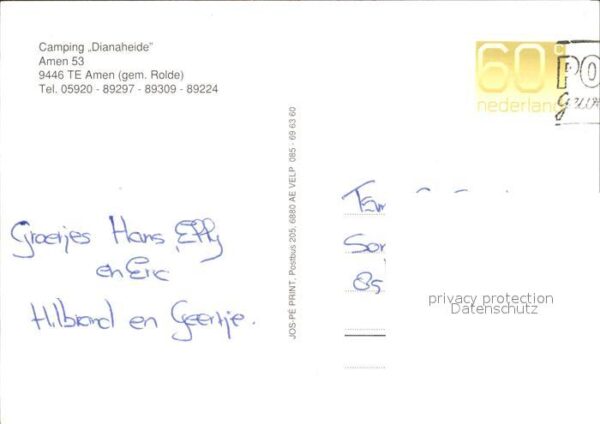 Camping „Dianaheide”
Amen 53
9446 TE Amen (gem. Rolde)
Tel. 05920 - 89297 - 89309 - 89224
60c
nederland
PO
JOS-PÉ PRINT, Postbus 205, 6880 AE VELP 085 - 69 63 60
Groetjes Hans, Elly
en Eric
Hilbrand en Geertje.
privacy protection
Datenschutz